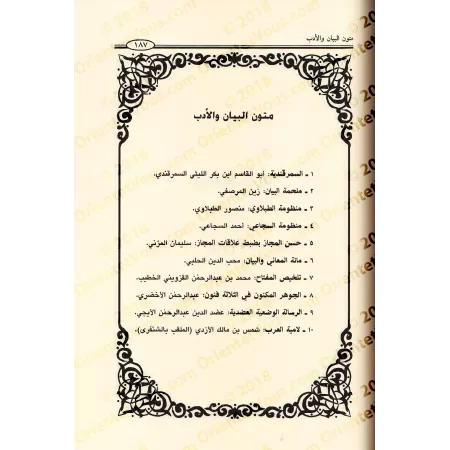 متون البيان والأدب
١٨٧
متون البيان والأدب
١ ـ السمرقندية: أبو القاسم ابن بكر الليثي السمرقندي.
٢ ـ منحمة البيان: زين المرصفي.
٣ ـ منظومة الطبلاوي: منصور الطبلاوي.
٤ ـ منظومة السجاعي: أحمد السجاعي.
٥ ـ حسن المجاز بضبط علاقات المجاز: سليمان المزني.
٦ ـ مائة المعاني والبيان: محب الدين الحلبي.
٧ ـ تلخيص المفتاح: محمد بن عبدالرحمن القزويني الخطيب.
٨ ـ الجوهر المكنون في الثلاثة فنون: عبدالرحمن الأخضري.
٩ ـ الرسالة الوضعية العضدية: عضد الدين عبدالرحمن الأيجي.
١٠ ـ لامية العرب: شمس بن مالك الأزدي (الملقب بالشنفرى).